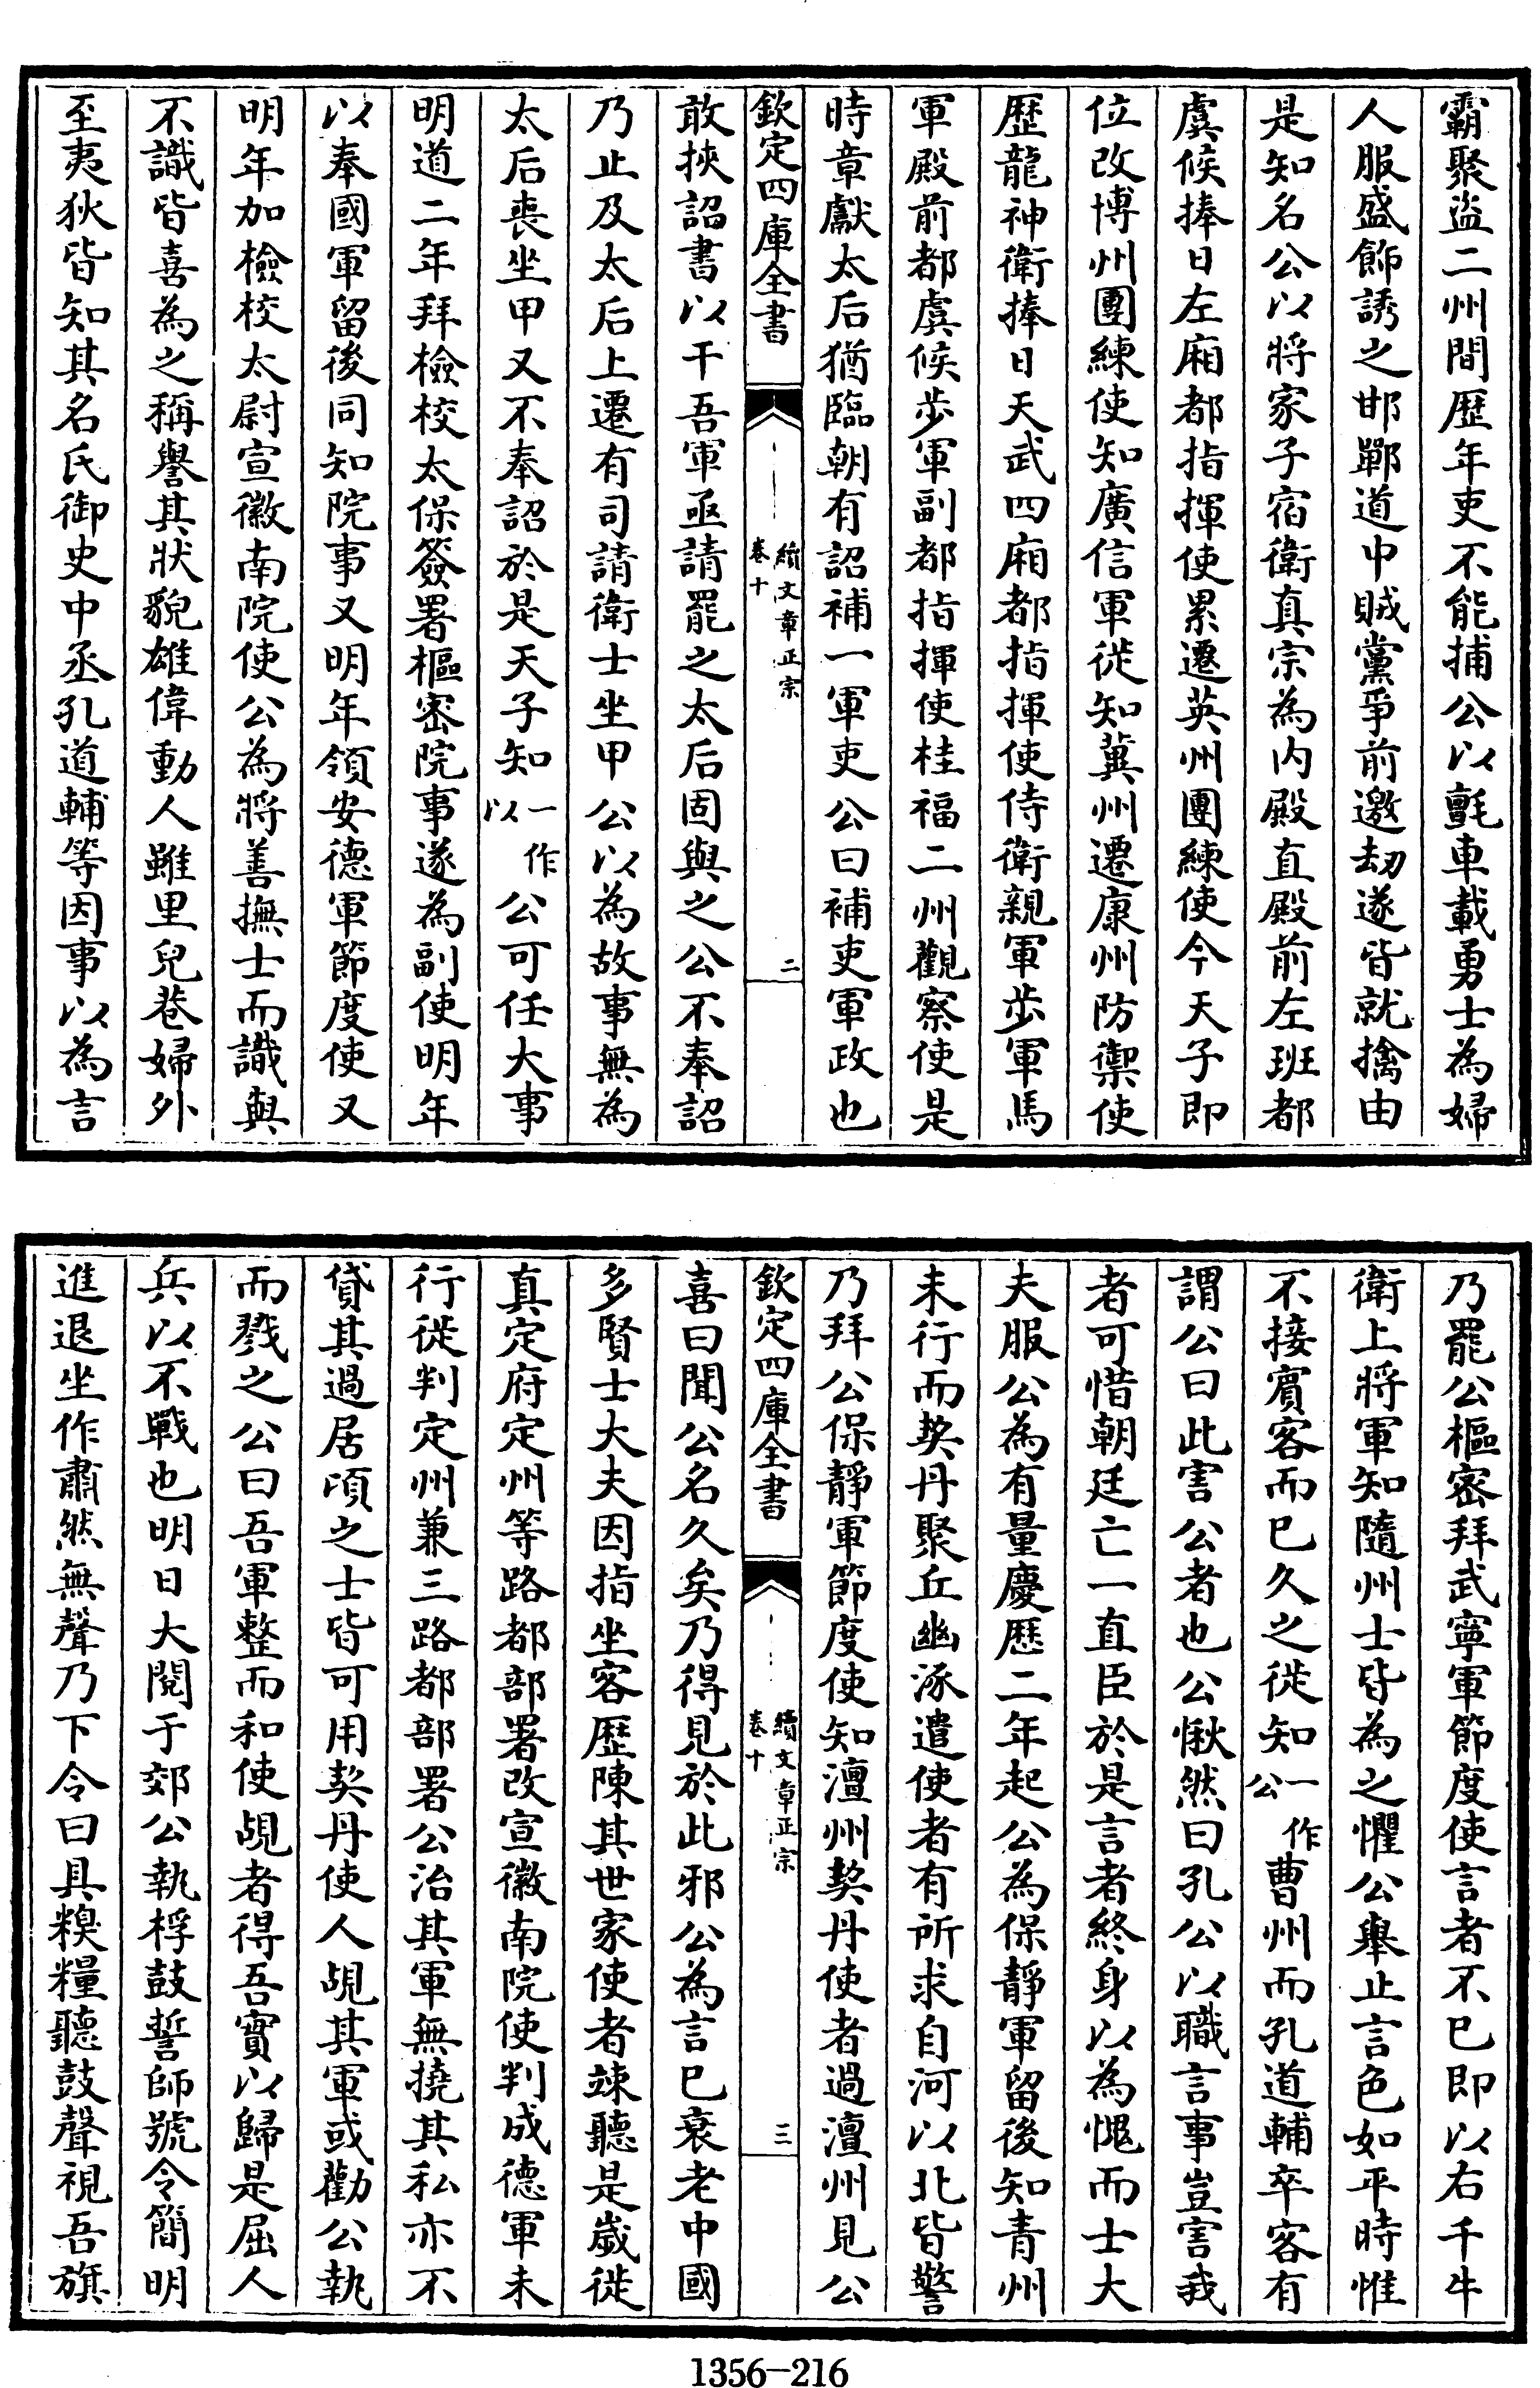 霸聚盜二州間歴年吏不能捕公以氊車載勇士為婦
人服盛飾誘之邯鄲道中賊黨爭前邀刼遂皆就擒由
是知名公以將家子宿衛真宗為内殿直殿前左班都
虞候捧日左廂都指揮使累遷英州團練使今天子即
位改博州團練使知廣信軍徙知冀州遷康州防禦使
歴龍神衛捧日天武四廂都指揮使侍衛親軍步軍馬
軍殿前都虞候步軍副都指揮使桂福二州觀察使是
時章獻太后猶臨朝有詔補一軍吏公曰補吏軍政也
欽定四庫全書
續文章正宗
卷十
二
敢挾詔書以干吾軍亟請罷之太后固與之公不奉詔
乃止及太后上遷有司請衛士坐甲公以為故事無為
太后喪坐甲又不奉詔於是天子知一作以公可任大事
明道二年拜檢校太保簽署樞密院事遂為副使明年
以奉國軍留後同知院事又明年領安德軍節度使又
明年加檢校太尉宣徽南院使公為將善撫士而識與
不識皆喜為之稱譽其狀貌雄偉動人雖里兒巷婦外
至夷狄皆知其名氏御史中丞孔道輔等因事以為言
乃罷公樞密拜武寧軍節度使言者不已即以右千牛
衛上將軍知隨州士皆為之懼公舉止言色如平時惟
不接賓客而已久之徙知一作公曹州而孔道輔卒客有
謂公曰此害公者也公愀然曰孔公以職言事豈害我
者可惜朝廷亡一直臣於是言者終身以為愧而士大
夫服公為有量慶歴二年起公為保靜軍留後知青州
未行而契丹聚丘幽涿遣使者有所求自河以北皆警
乃拜公保靜軍節度使知澶州契丹使者過澶州見公
欽定四庫全書
續文章正宗
卷十
三
喜曰聞公名久矣乃得見於此邪公為言已衰老中國
多賢士大夫因指坐客歴陳其世家使者竦聽是嵗徙
真定府定州等路都部署改宣徽南院使判成德軍未
行徙判定州兼三路都部署公治其軍無撓其私亦不
貸其過居頃之士皆可用契丹使人覘其軍或勸公執
而戮之公曰吾軍整而和使覘者得吾實以歸是屈人
兵以不戰也明日大閱于郊公執桴鼓誓師號令簡明
進退坐作肅然無聲乃下令曰具糗糧聽鼓聲視吾旗
1356-216